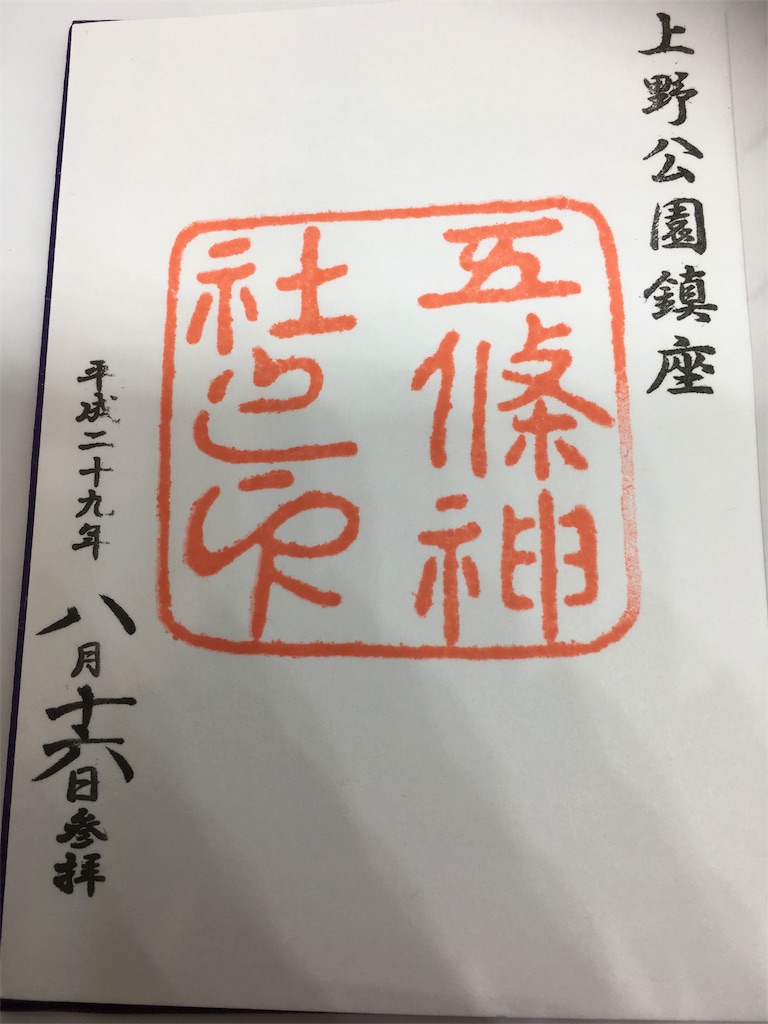 上野公園鎮座
五條神
社之印
平成二十九年八月十六日参拝